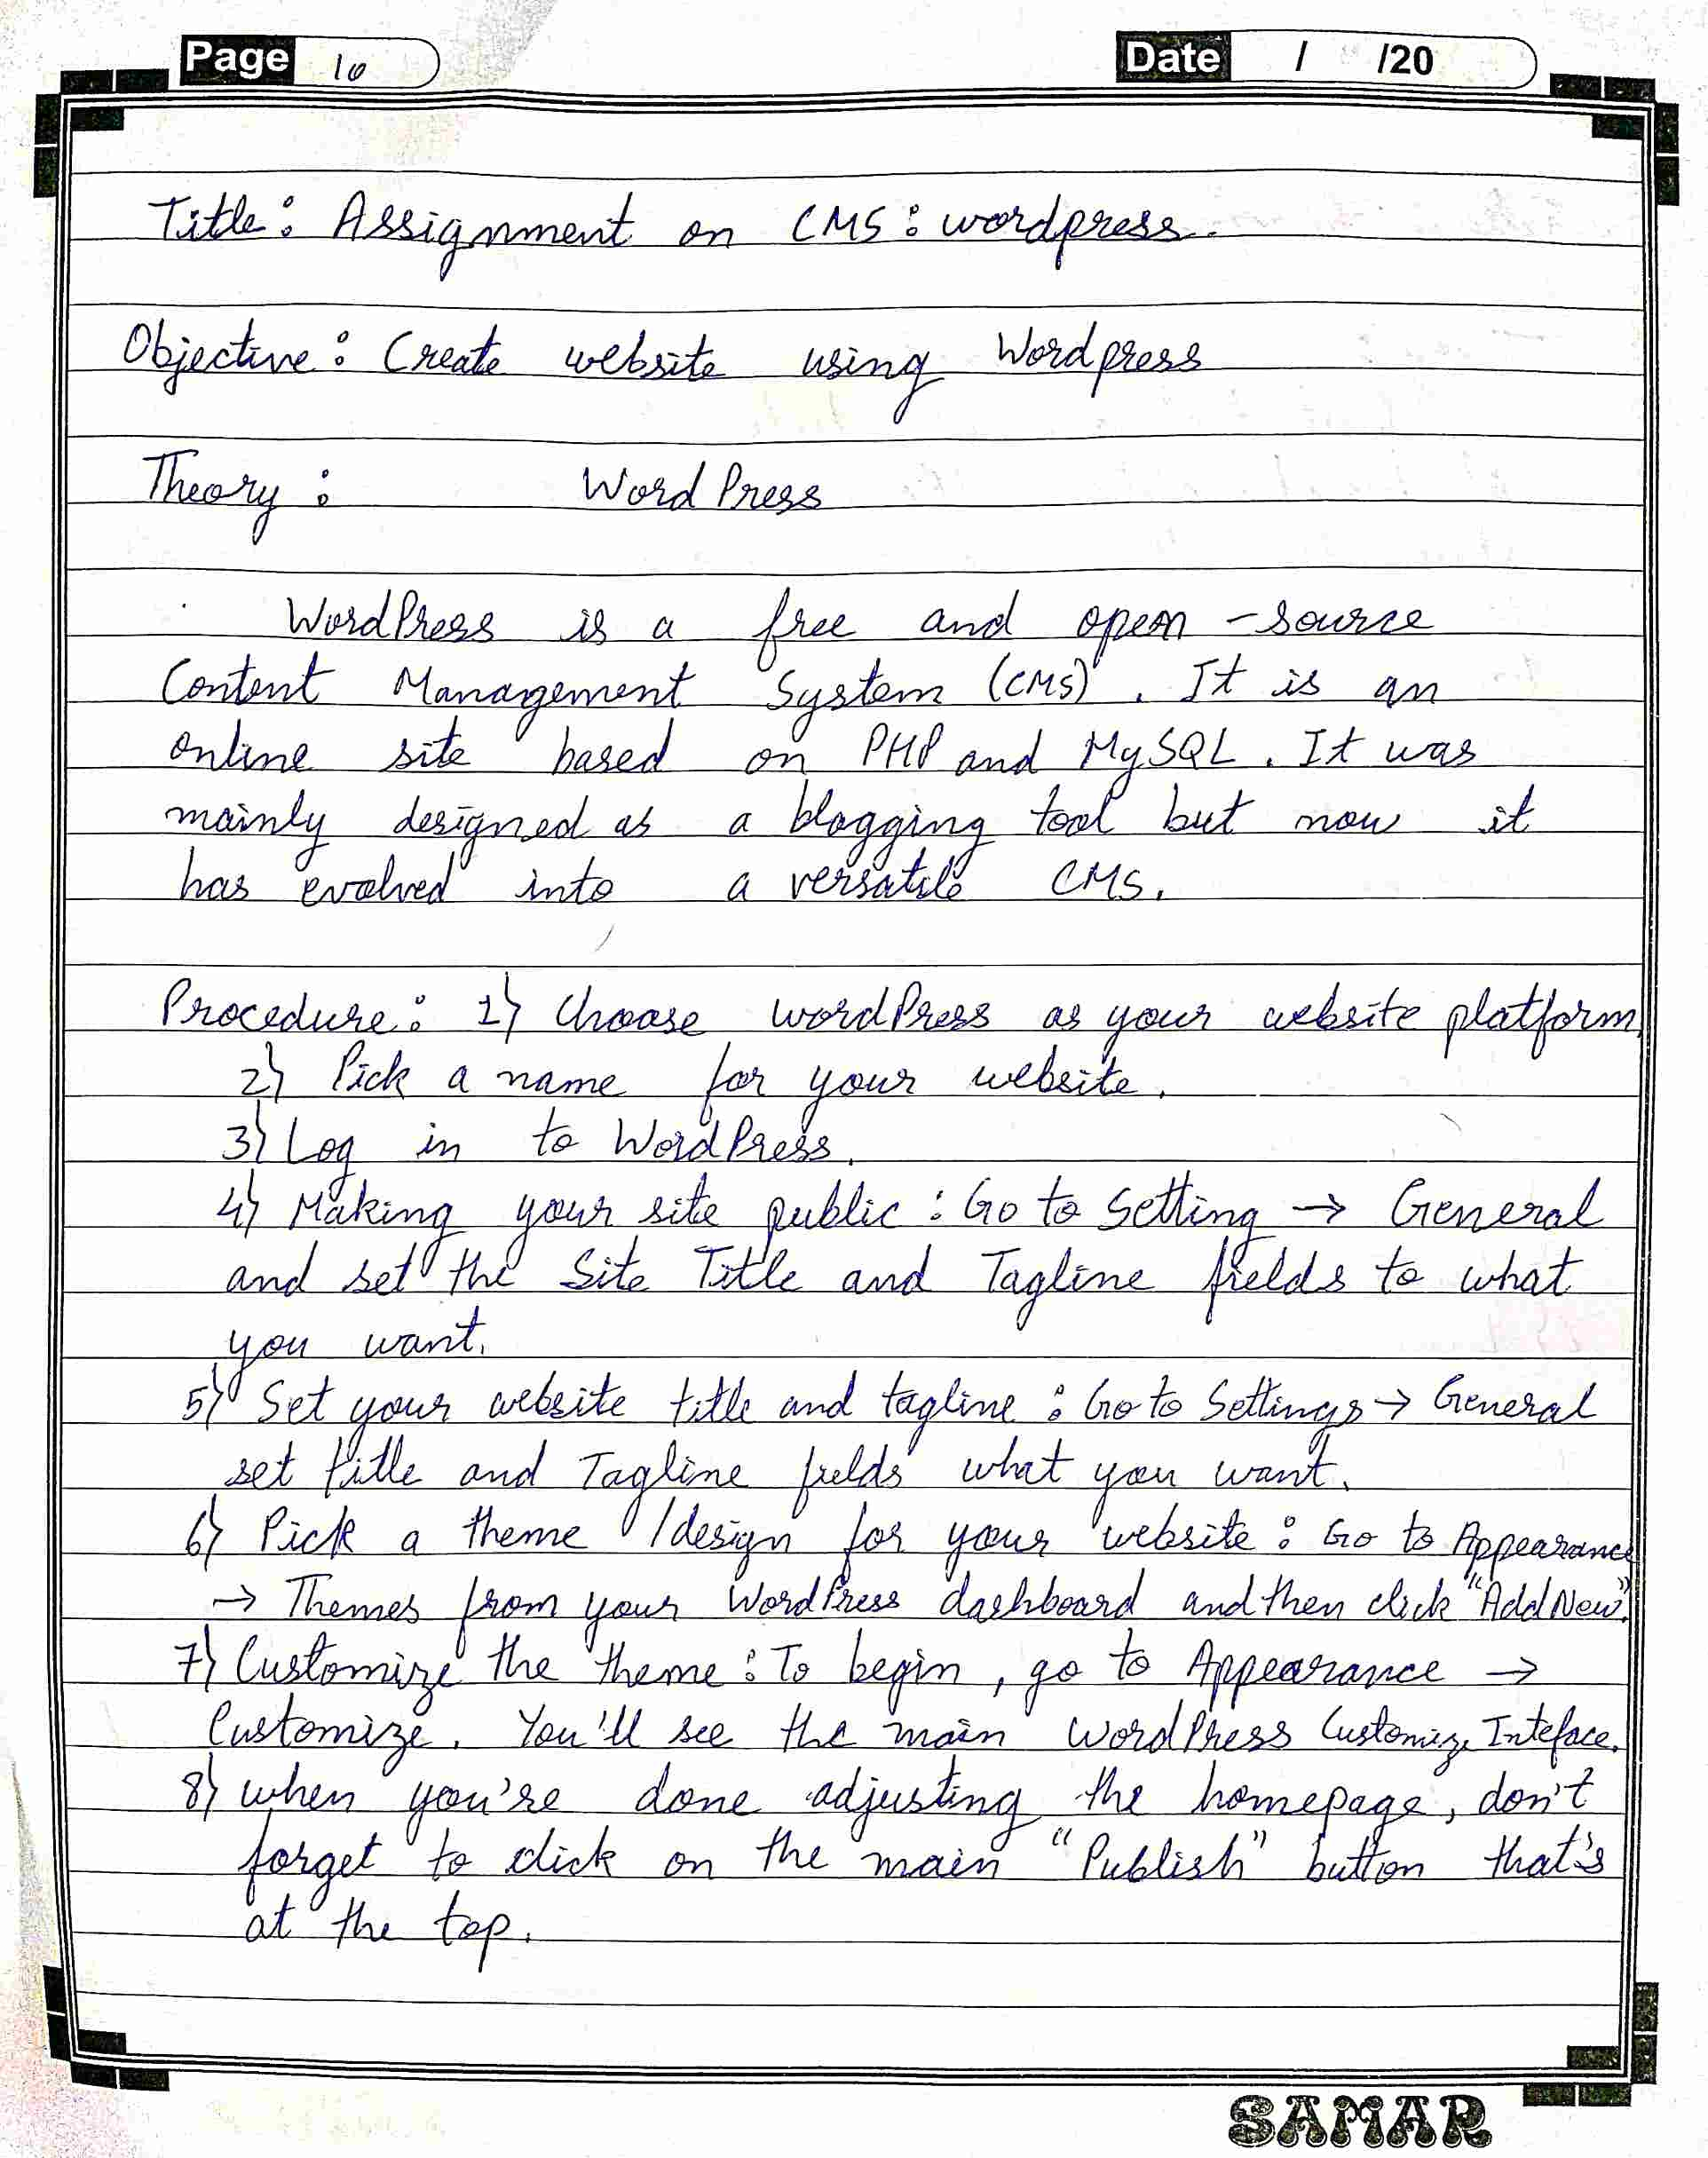 Page 10
Date / /20
Title: Assignment on CMS: wordpress.
Objective: Create website using Wordpress
Theory: WordPress
WordPress is a free and open-source
Content Management System (CMS). It is an
online site based on PHP and MySQL. It was
mainly designed as a blogging tool but now it
has evolved into a versatile CMS.
Procedure: 1) Choose WordPress as your website platform.
2) Pick a name for your website.
3) Log in to WordPress.
4) Making your site public: Go to Setting → General
and set the Site Title and Tagline fields to what
you want.
5) Set your website title and tagline: Go to Settings → General
set title and Tagline fields what you want.
6) Pick a theme/design for your website: Go to Appearance
→ Themes from your WordPress dashboard and then click "Add New".
7) Customize the theme: To begin, go to Appearance →
Customize. You'll see the main WordPress Customize Inteface.
8) when you're done adjusting the homepage, don't
forget to click on the main "Publish" button that's
at the top.
SAMAR